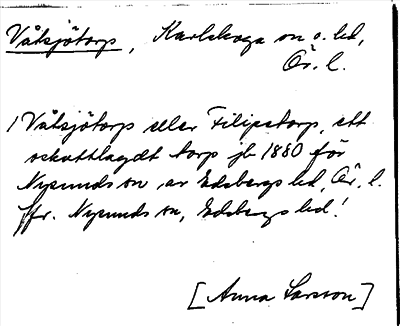 Våtsjötorp, Karlskoga sn o. hd,
Ör. l.
1 Våtsjötorp eller Filipstorp, ett
oskattlagdt torp jb 1880 för
Nysunds sn av Edsbergs hd, Ör. l.
Jfr. Nysunds sn, Edsbergs hd!
[Anna Larsson]